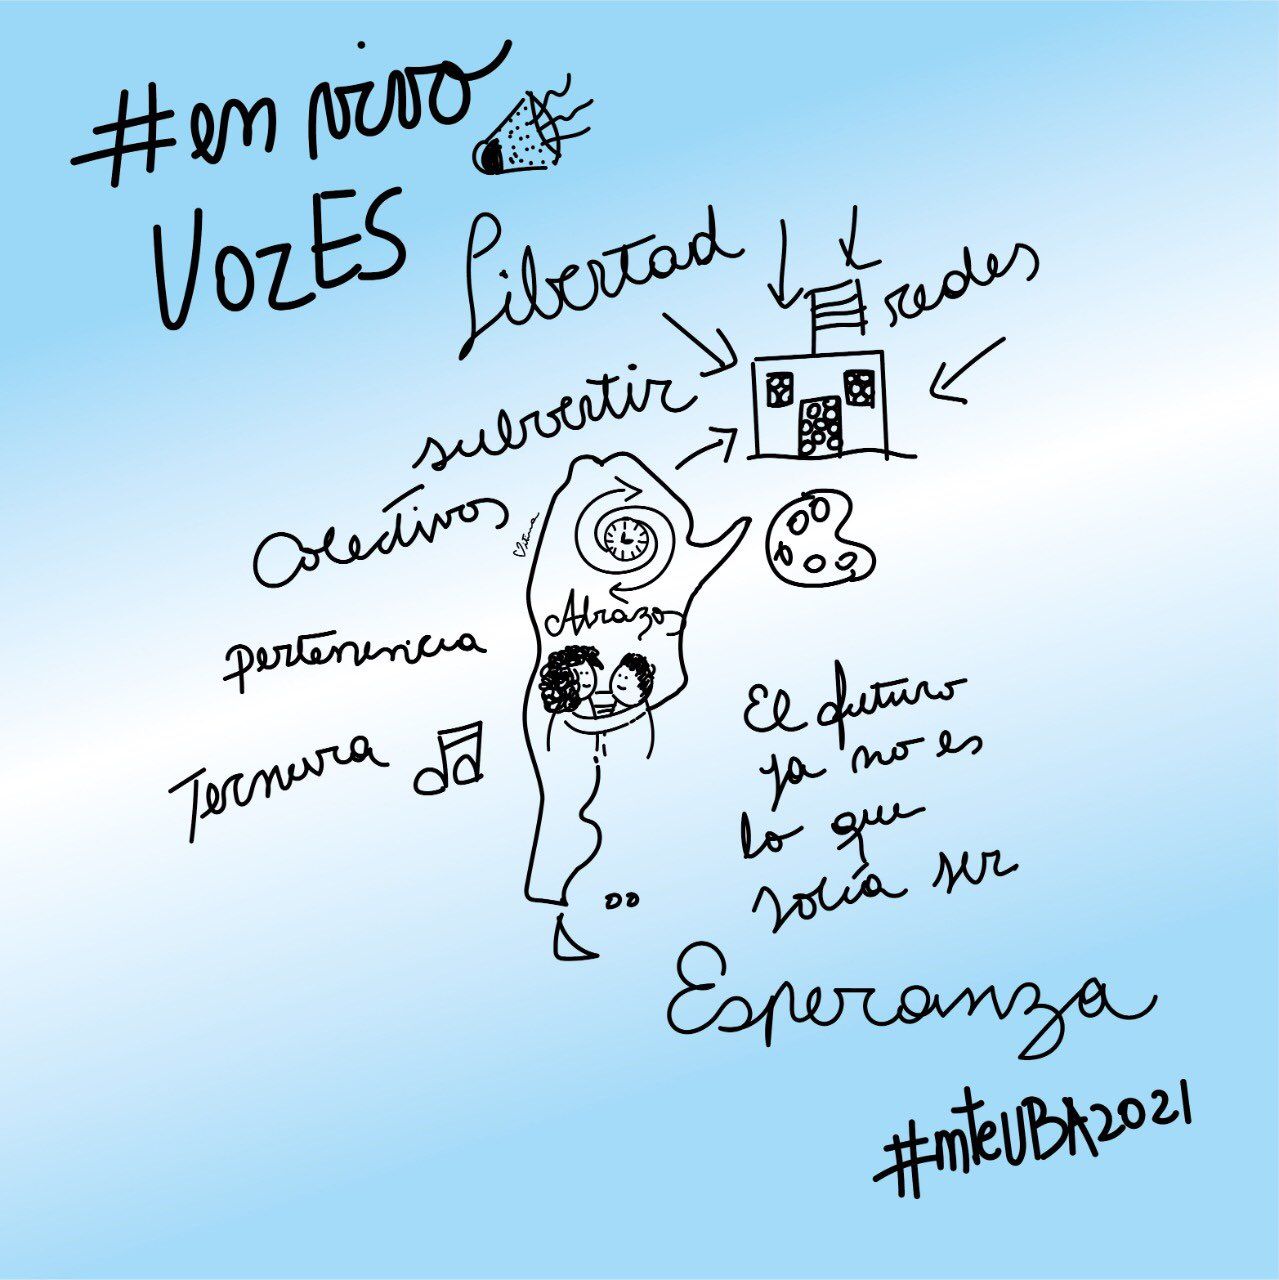 #en vivo
VozES
Libertad
redes
subvertir
Colectivos
Abrazos
pertenencia
Ternura
El futuro
ya no es
lo que
solía ser
Esperanza
#mteUBA2021